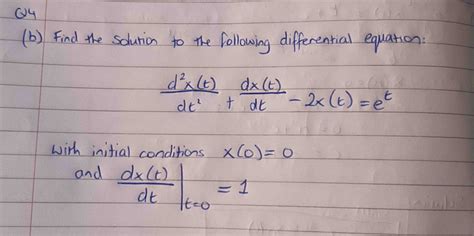 Q4
(b) Find the solution to the following differential equation:
d²x(t)/dt² + dx(t)/dt - 2x(t) = e^t
With initial conditions x(0) = 0
and dx(t)/dt |t=0 = 1